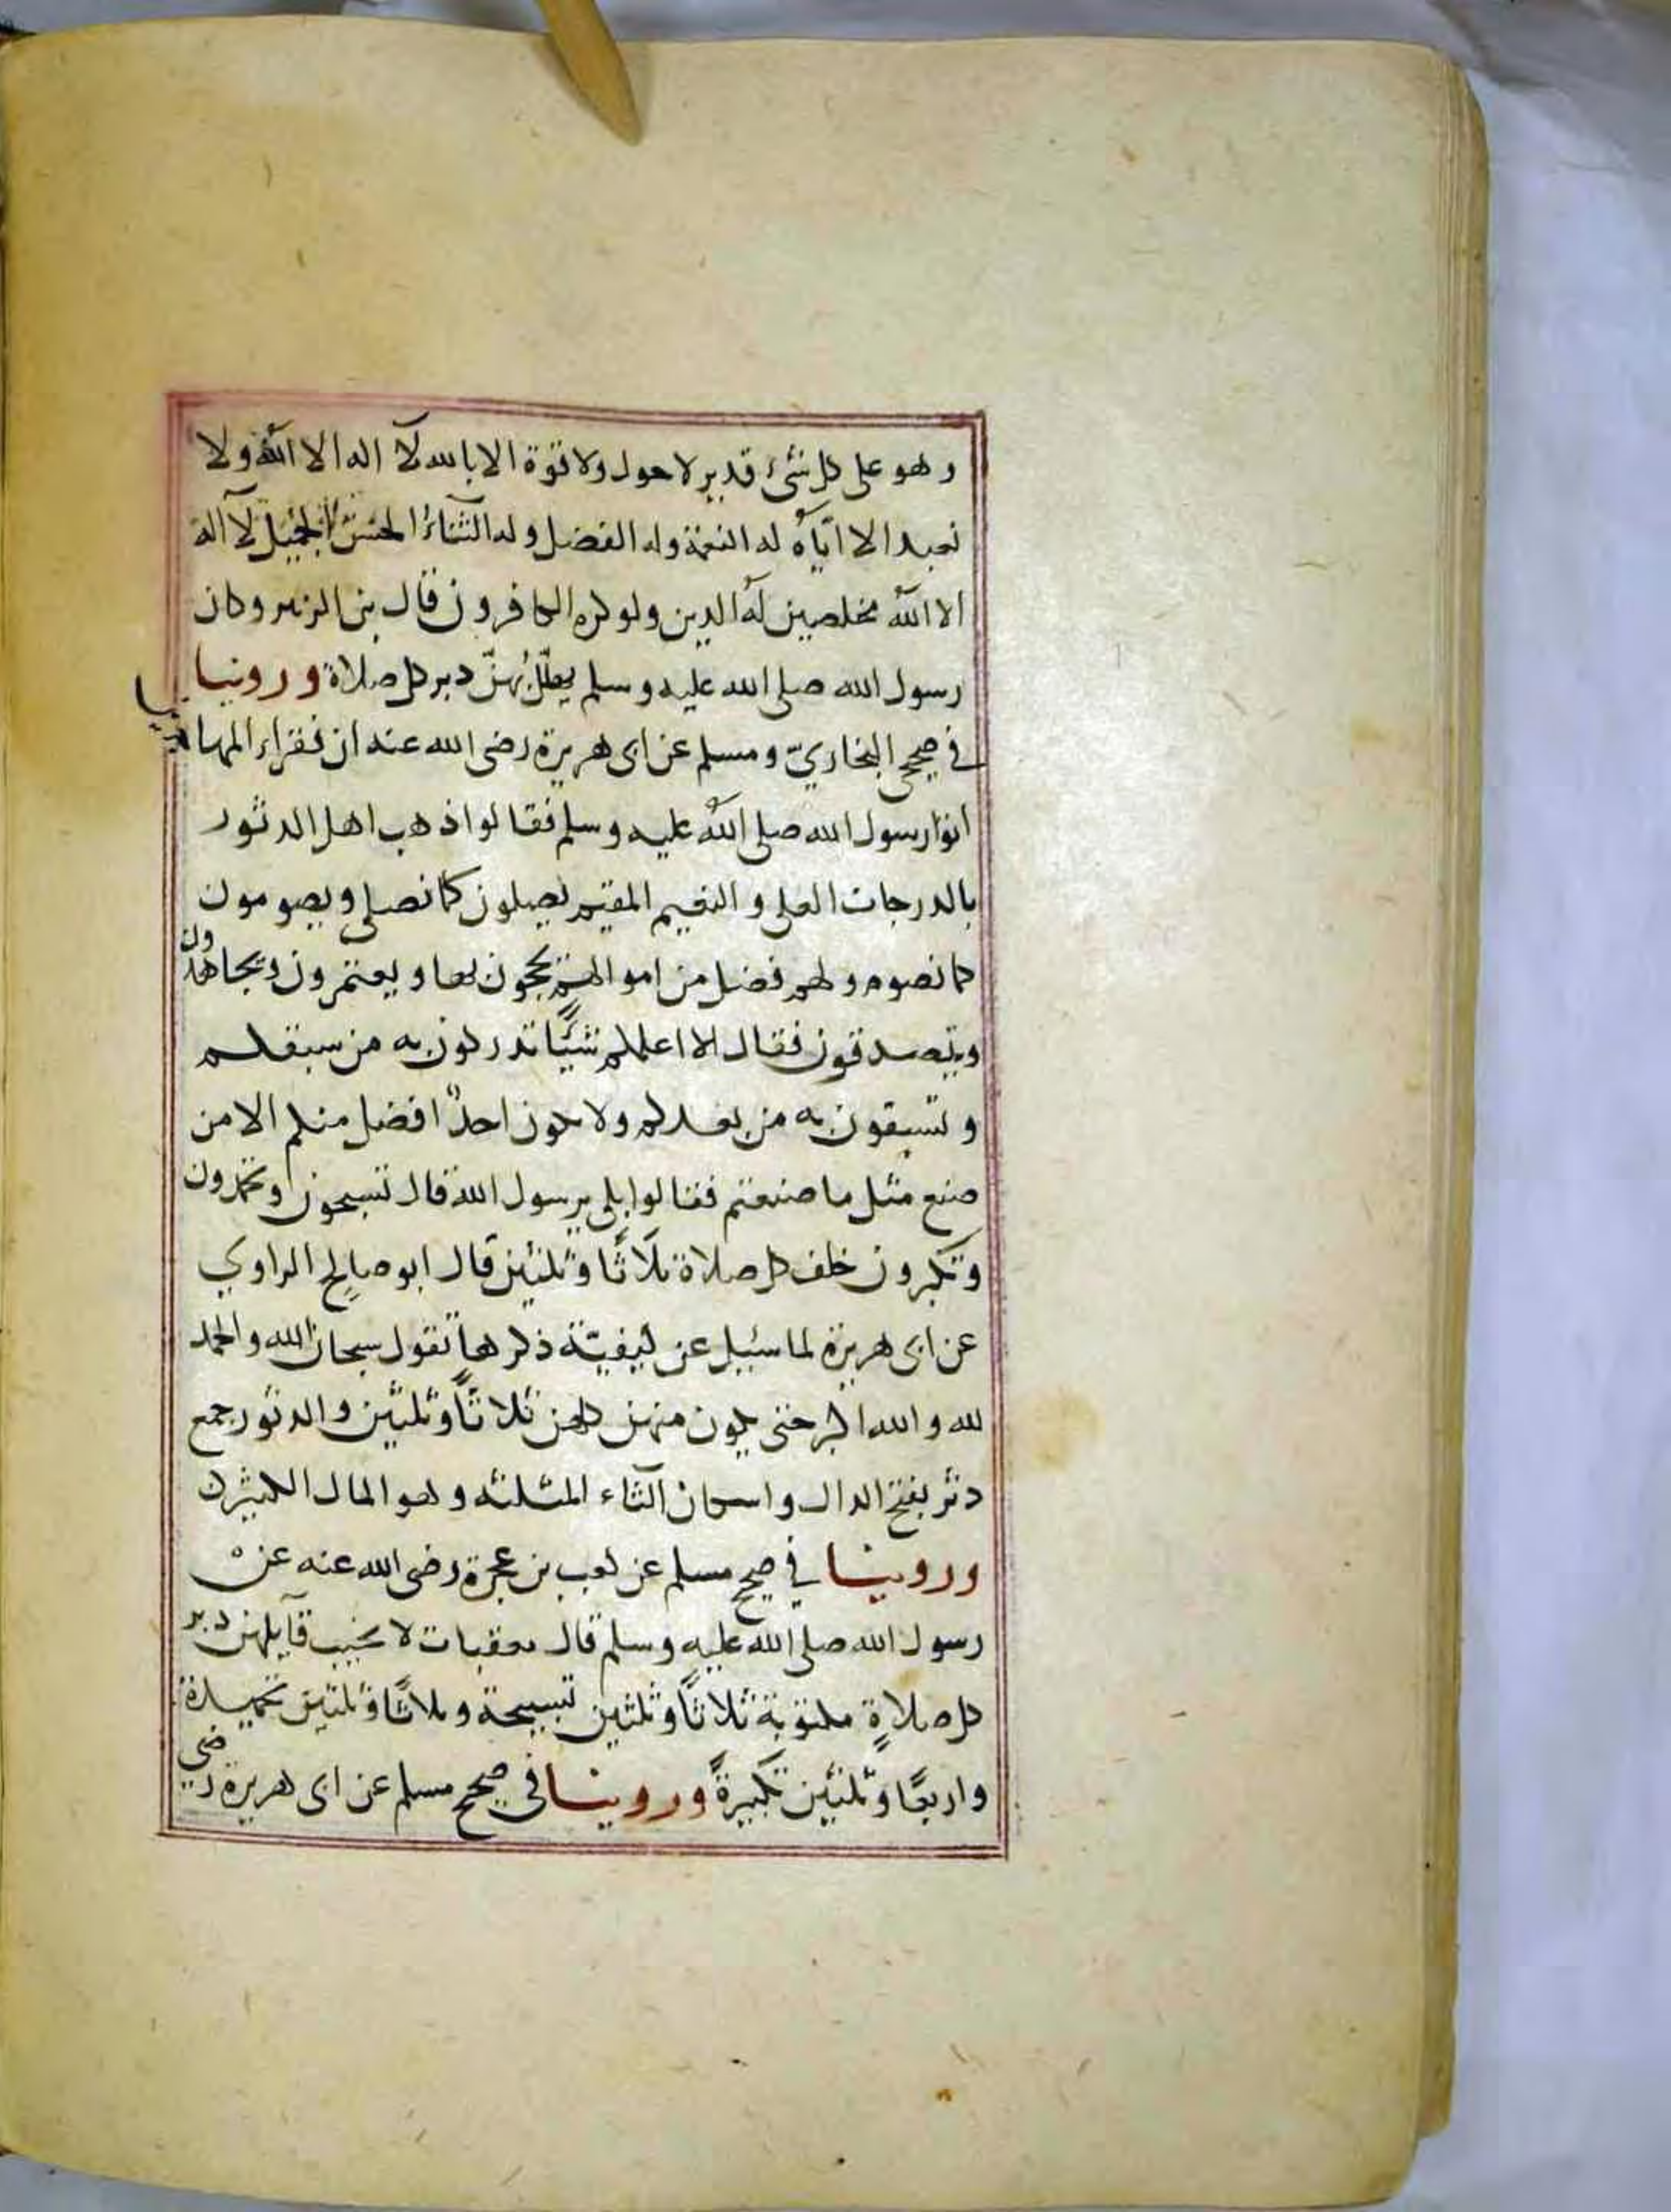 وهو على كل شئ قدير لا حول ولا قوة الا بالله لا اله الا الله ولا
نعبد الا اياه له النعمة وله الفضل وله الثناء الحسن الجميل لا اله
الا الله مخلصين له الدين ولو كره الكافرون قال بن الزبير وكان
رسول الله صلى الله عليه وسلم يهلل بهنّ دبر كل صلاة وروينا
في صحيحى البخاريّ ومسلم عن ابى هريرة رضى الله عنه ان فقراء المهاجرين
اتوا رسول الله صلى الله عليه وسلم فقالوا ذهب اهل الدثور
بالدرجات العلى والنعيم المقيم يصلون كما نصلى ويصومون
كما نصوم ولهم فضل من اموالهم يحجون بها ويعتمرون ويجاهدون
ويتصدقون فقال الا اعلمكم شئًا تدركون به من سبقكم
وتسبقون به من بعدكم ولا يكون احدٌ افضل منكم الا من
صنع مثل ما صنعتم فقالوا بلى يرسول الله قال تسبحون وتحمدون
وتكبرون خلف كل صلاة ثلاثًا وثلثين قال ابو صالح الراوي
عن ابى هريرة لما سئيل عن كيفيّة ذكرها تقول سبحان الله والحمد
لله والله اكبر حتى يكون منهن كلهن ثلاثًا وثلثين والدثور جمع
دثر بفتح الدال واسكان الثاء المثلثه وهو المال الكثير
وروينا في صحيح مسلم عن كعب بن عجرة رضى الله عنه عن
رسول الله صلى الله عليه وسلم قال معقبات لا يخيب قآيلهن دبر
كل صلاةٍ مكتوبة ثلاثًا وثلثين تسبيحة وثلاثًا وثلثين تحميدة
واربعًا وثلثين تكبيرةً وروينا فى صحيح مسلم عن ابى هريرة رضى